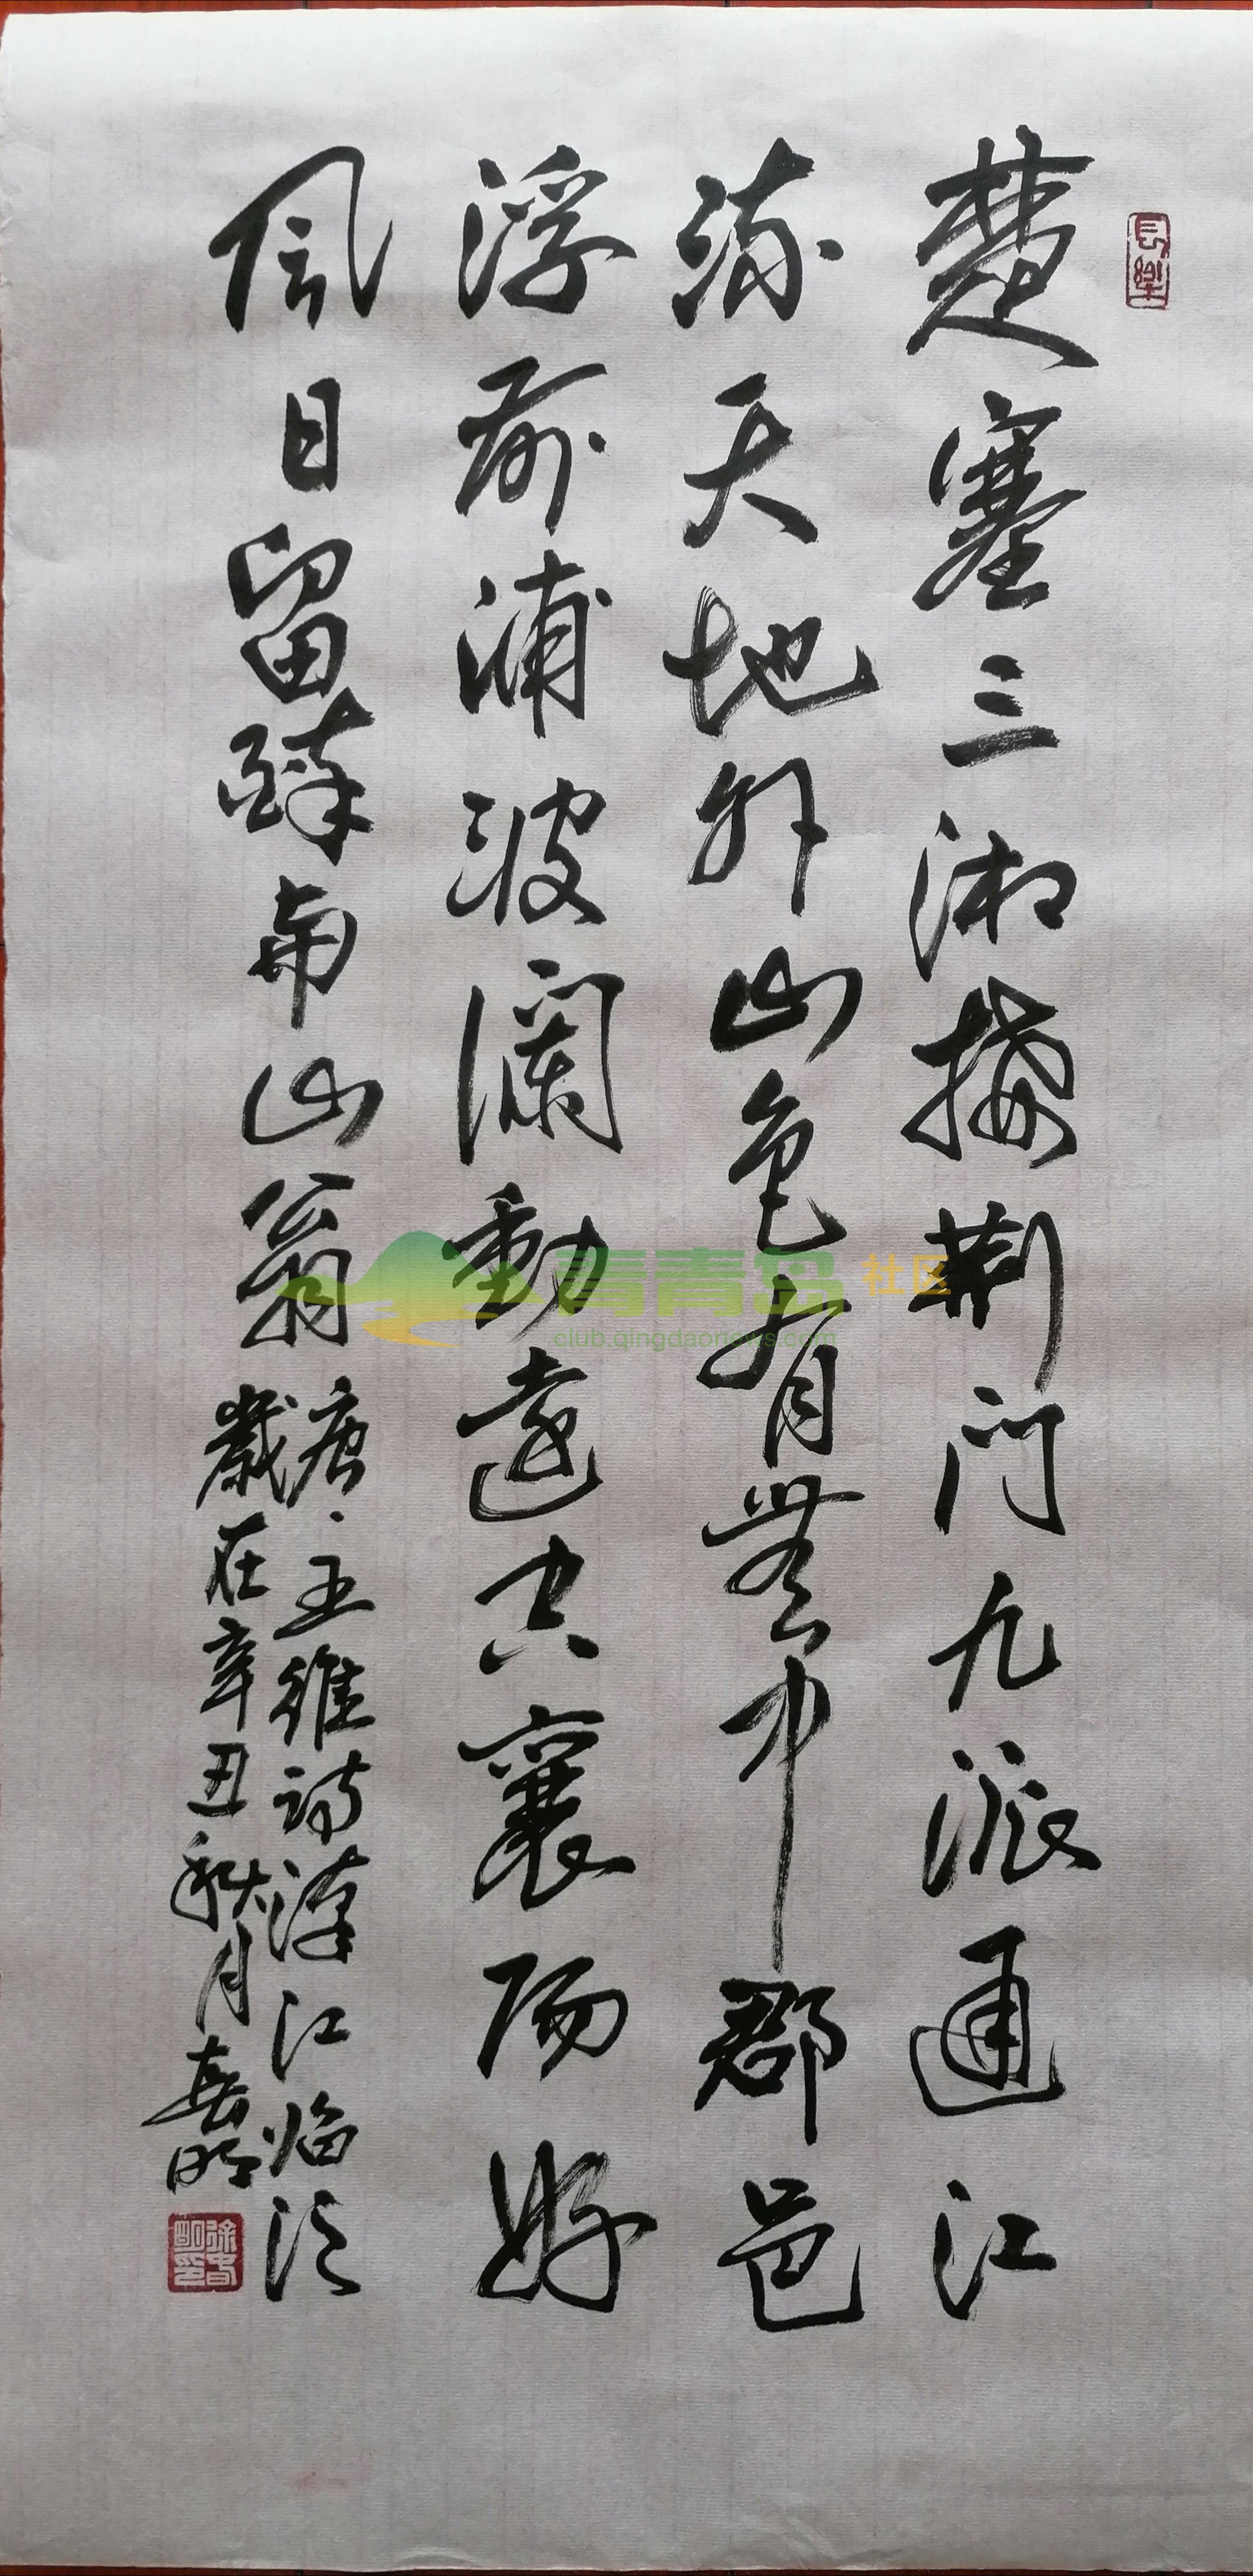 長樂
楚塞三湘接荆门九派通江
流天地外山色有無中郡邑
浮前浦波澜動遠空襄陽好
風日留醉與山翁
唐·王維诗漢江临泛
歲在辛丑秋月喜明
青青岛社区
club.qingdaonews.com